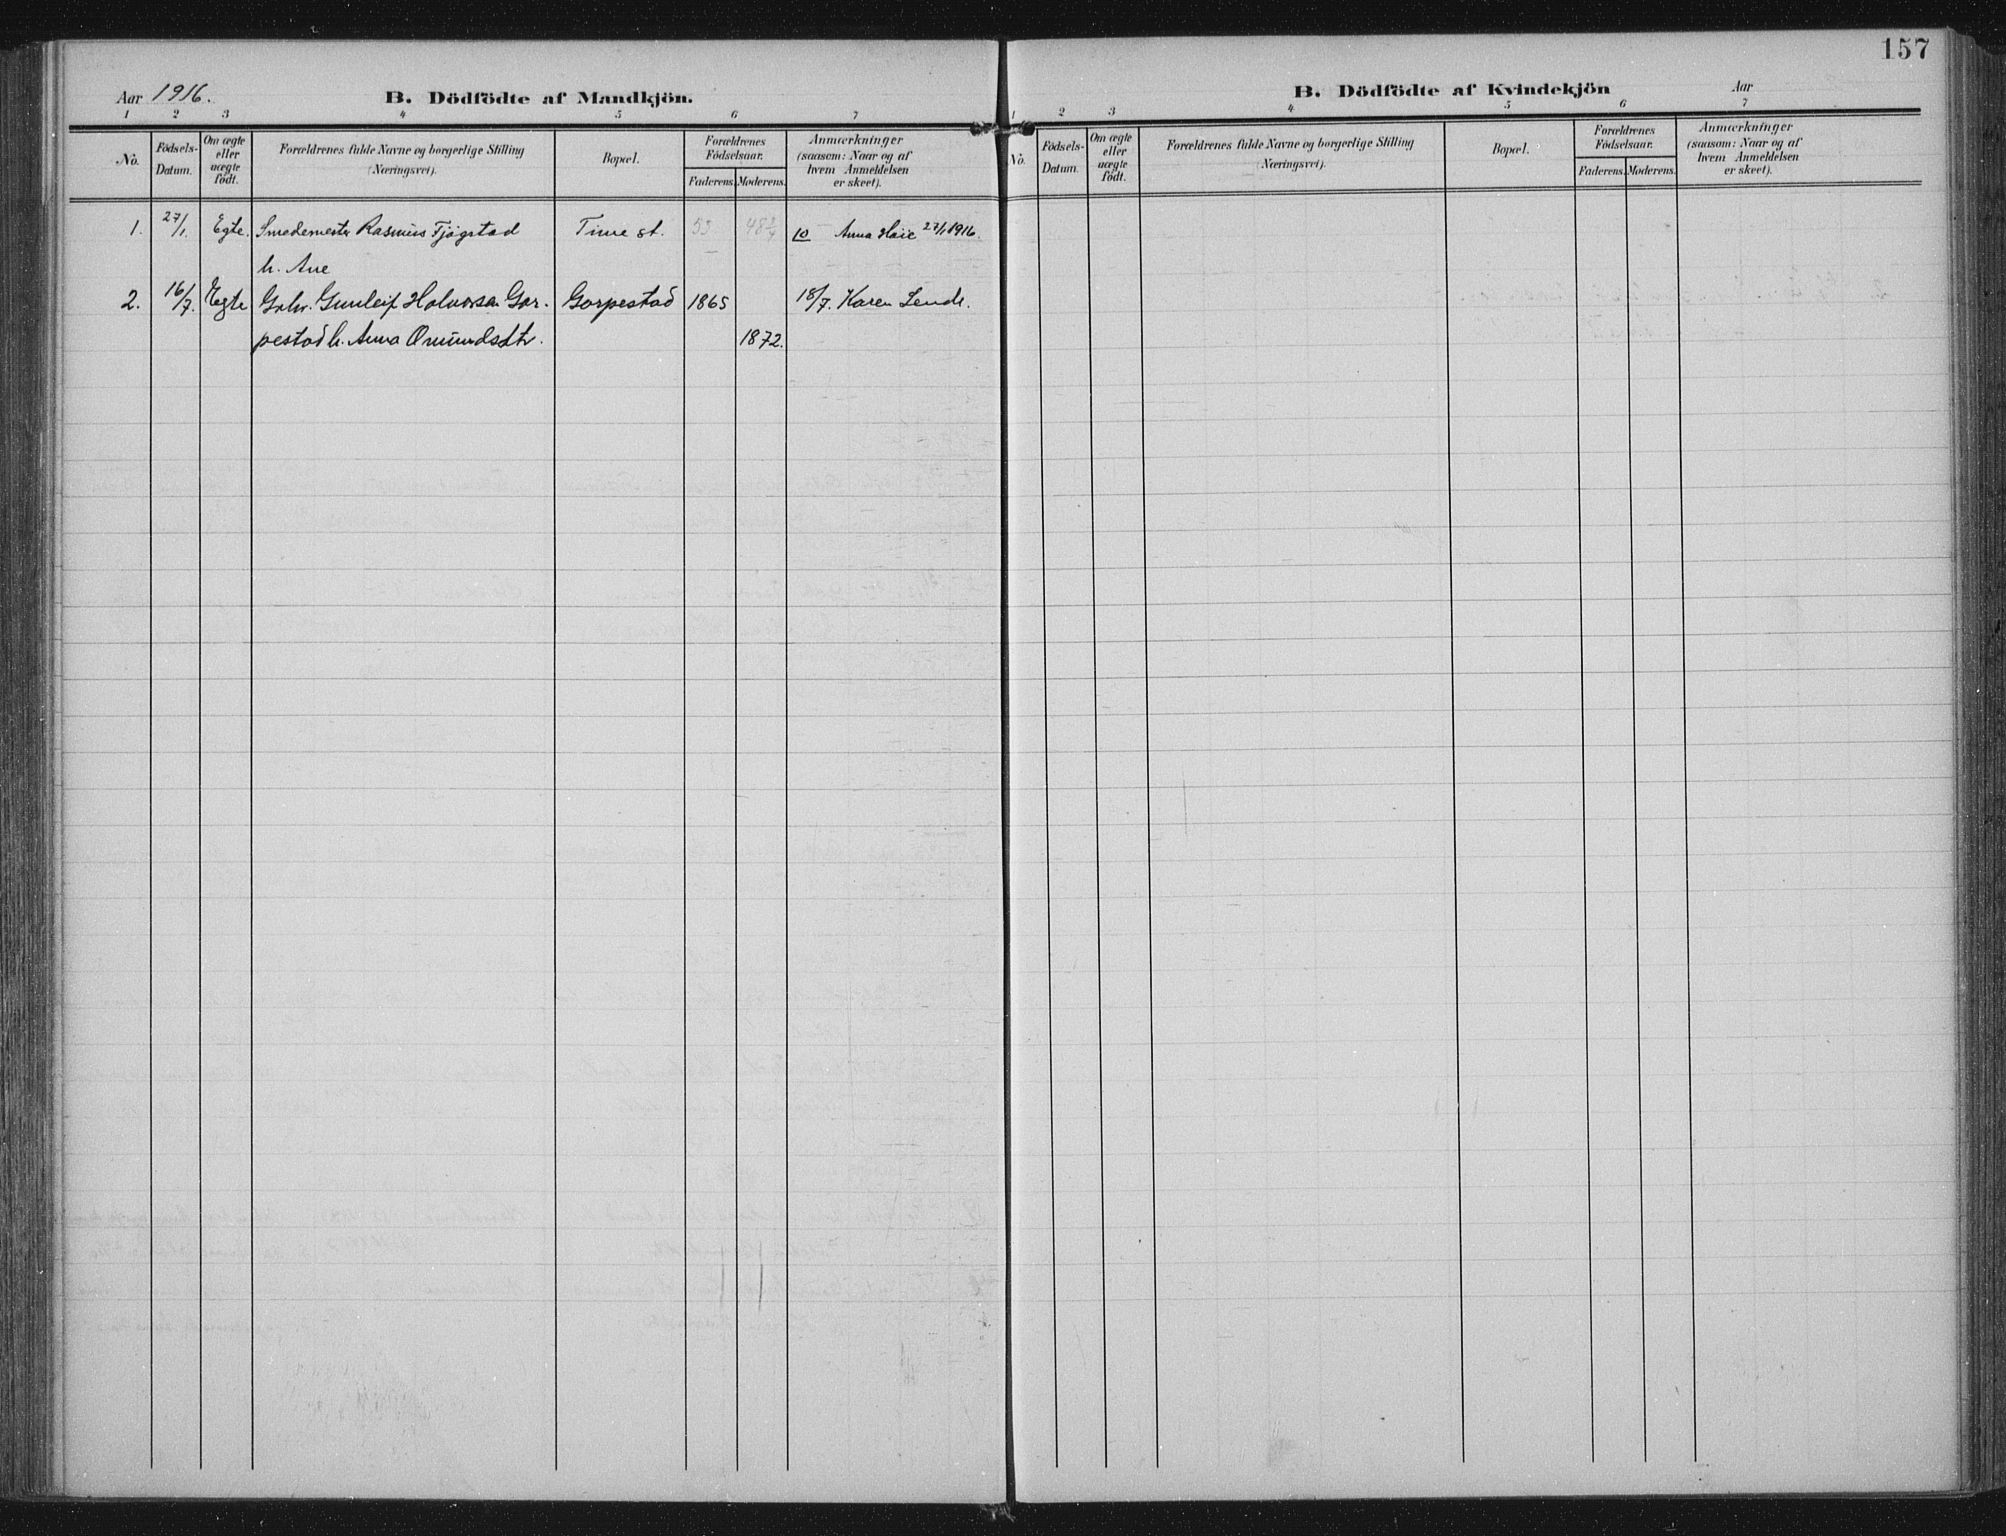 157
Aar 1916.
B. Dödfödte af Mandkjön.
1 2 3 4 5 6 7
No.
Födsels-
Datum.
Om ægte
eller
uægte
födt.
Forældrenes fulde Navne og borgerlige Stilling
(Næringsvei).
Bopæl.
Forældrenes
Födselsaar.
Faderens. Moderens.
Anmærkninger
(saasom: Naar og af
hvem Anmeldelsen
er skeet).
1. 27/1. Egte. Smedemester Rasmus Fjøgstad Time st. 53 10 Anna Høie 27/1 1916.
h. Ane
2. 16/7. Egte Grbr. Gunleif Halvorsen Gar- Garpestad 1865 18/7. Karen Lende.
pestad h. Anna Omundsdtr. 1872.
B. Dödfödte af Kvindekjön
Aar
1 2 3 4 5 6 7
No.
Födsels-
Datum.
Om ægte
eller
uægte
födt.
Forældrenes fulde Navne og borgerlige Stilling
(Næringsvei).
Bopæl.
Forældrenes
Födselsaar.
Faderens. Moderens.
Anmærkninger
(saasom: Naar og af
hvem Anmeldelsen
er skeet).